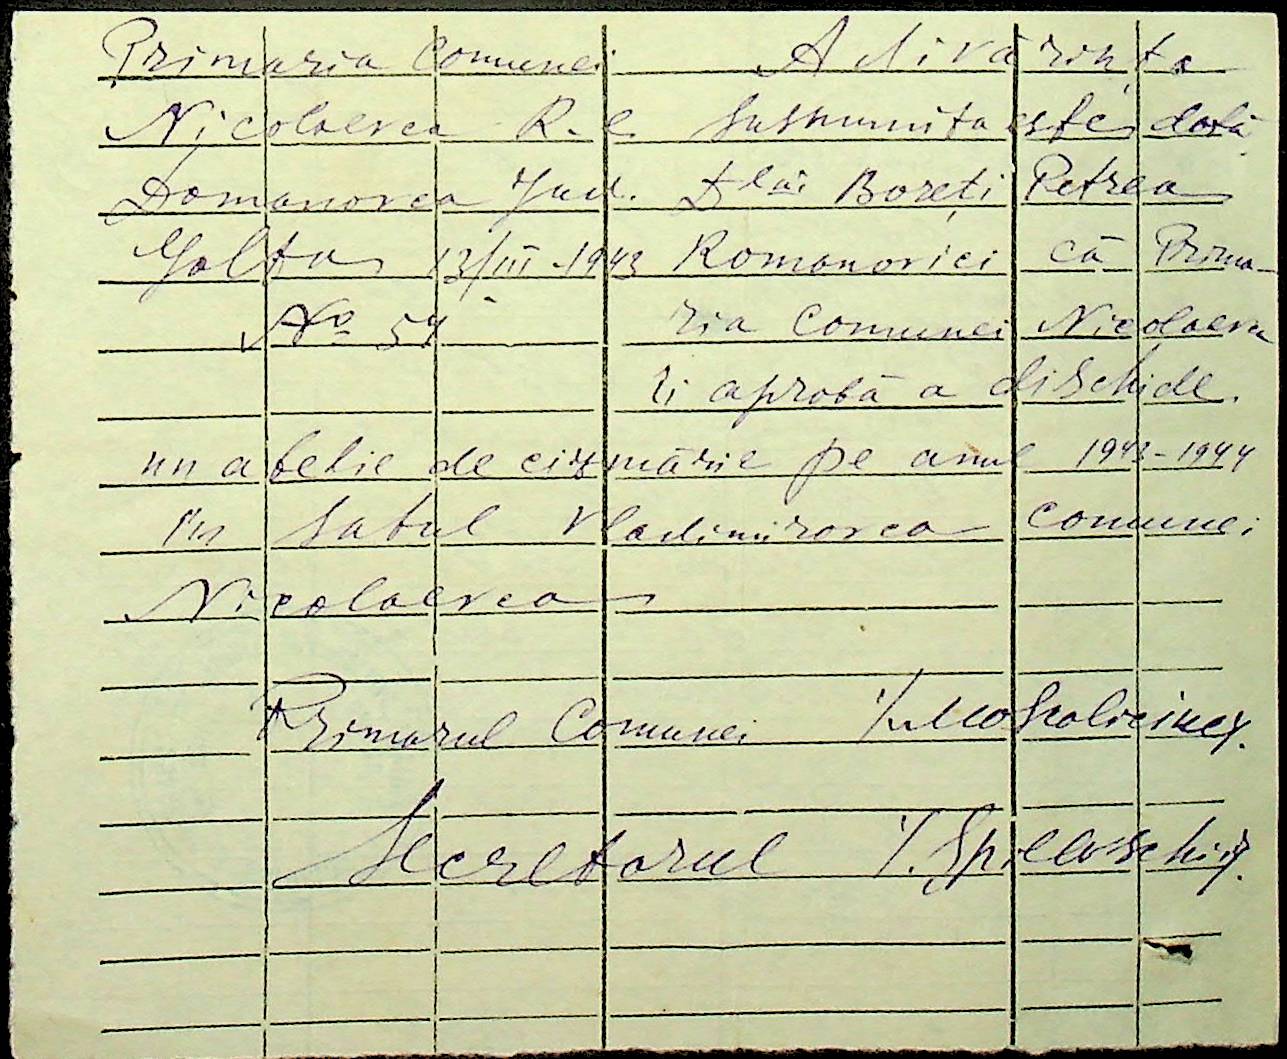 Primaria Comunei
Nicolaevca R-l
Domanovca Jud.
Golta 13/III-1943
No 54
Adivărința
Susnumita este dată
Dlui Boreți Petrea
Romanovici că Prima-
ria Comunei Nicolaevca
ii aprobă a dischide
un atelie de cizmărie pe anul 1943-1944
în satul Vladimirovca comunei
Nicolaevca
Primarul Comunei
Secretarul